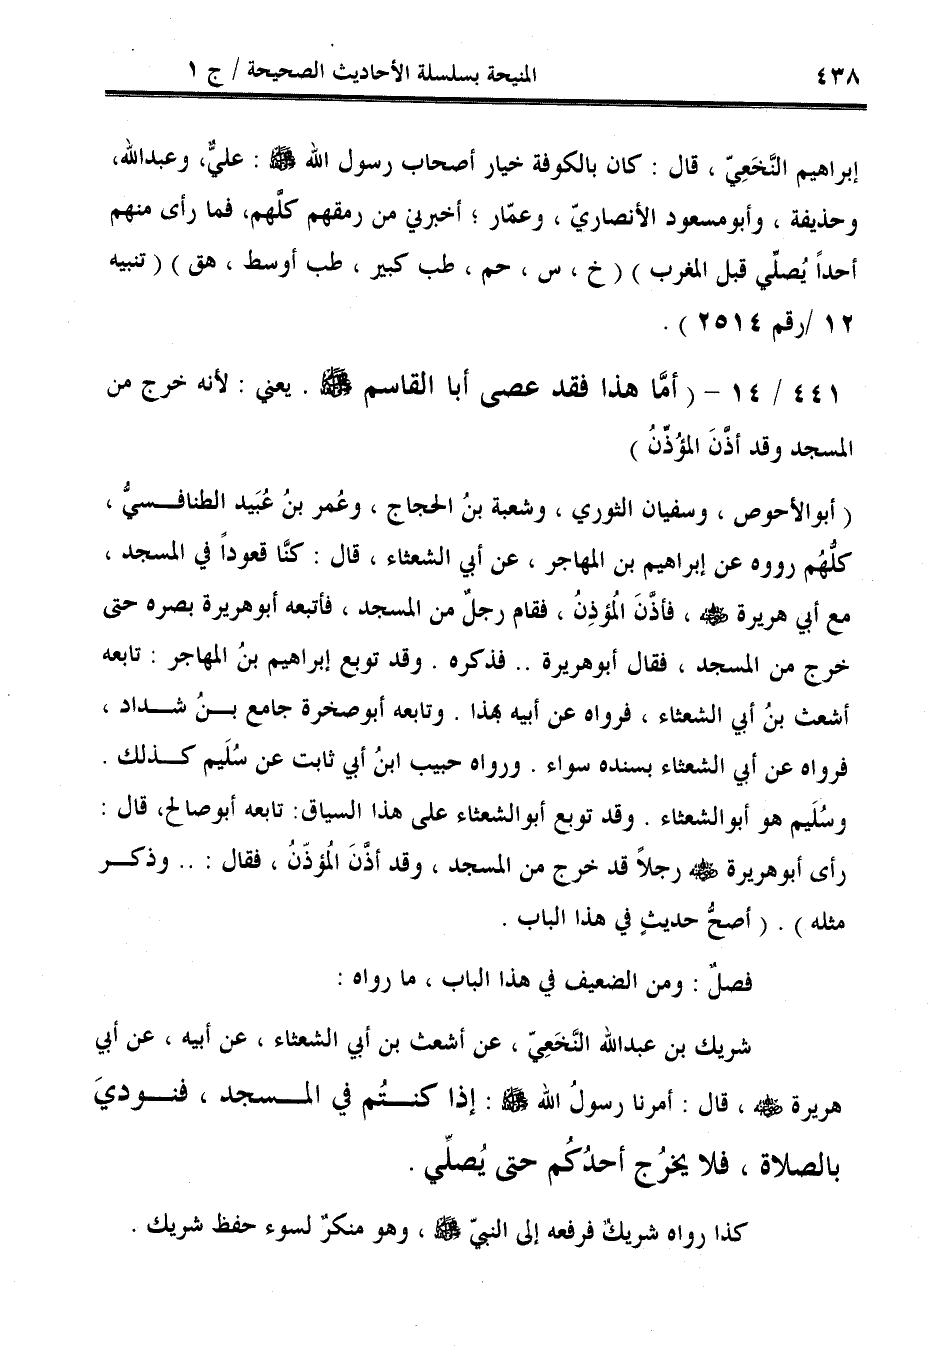 ٤٣٨ المنيحة بسلسلة الأحاديث الصحيحة / ج ١
إبراهيم النَّخَعِيّ ، قال : كان بالكوفة خيار أصحاب رسول الله ﷺ : عليٌّ، وعبدالله،
وحذيفة ، وأبومسعود الأنصاريّ ، وعمّار ؛ أخبرني من رمقهم كلَّهم، فما رأى منهم
أحداً يُصلّي قبل المغرب ) ( خ ، س ، حم ، طب كبير ، طب أوسط ، هق ) ( تنبيه
١٢ /رقم ٢٥١٤ ) .
٤٤١ / ١٤ – ( أمَّا هذا فقد عصى أبا القاسم ﷺ . يعني : لأنه خرج من
المسجد وقد أذَّنَ المؤذّنُ )
( أبوالأحوص ، وسفيان الثوري ، وشعبة بنُ الحجاج ، وعُمر بنُ عُبَيد الطنافـسيُّ ،
كلُّهُم رووه عن إبراهيم بن المهاجر ، عن أبي الشعثاء ، قال : كنَّا قعوداً في المسجد ،
مع أبي هريرة ﵁ ، فأذَّنَ الُمؤذِنُ ، فقام رجلٌ من المسجد ، فأتبعه أبوهريرة بصره حتى
خرج من المسجد ، فقال أبوهريرة .. فذكره . وقد توبع إبراهيم بنُ المهاجر : تابعه
أشعث بنُ أبي الشعثاء ، فرواه عن أبيه بهذا . وتابعه أبوصخرة جامع بــنُ شــداد ،
فرواه عن أبي الشعثاء بسنده سواء . ورواه حبيب ابنُ أبي ثابت عن سُلَيم كــذلك .
وسُلَيم هو أبوالشعثاء . وقد توبع أبوالشعثاء على هذا السياق: تابعه أبوصالح، قال :
رأى أبوهريرة ﵁ رجلاً قد خرج من المسجد ، وقد أذَّنَ الُمؤذّنُ ، فقال : .. وذكـر
مثله ) . ( أصحُّ حديثٍ في هذا الباب .
فصلٌ : ومن الضعيف في هذا الباب ، ما رواه :
شريك بن عبدالله النَّخَعِيّ ، عن أشعث بن أبي الشعثاء ، عن أبيه ، عن أبي
هريرة ﵁ ، قال : أمرنا رسولُ الله ﷺ : إذا كنــتُم في المــسجد ، فنــوديَ
بالصلاة ، فلا يخرُج أحدُكُم حتى يُصلِّي .
كذا رواه شريكٌ فرفعه إلى النبيّ ﷺ ، وهو منكرٌ لسوء حفظ شريك .